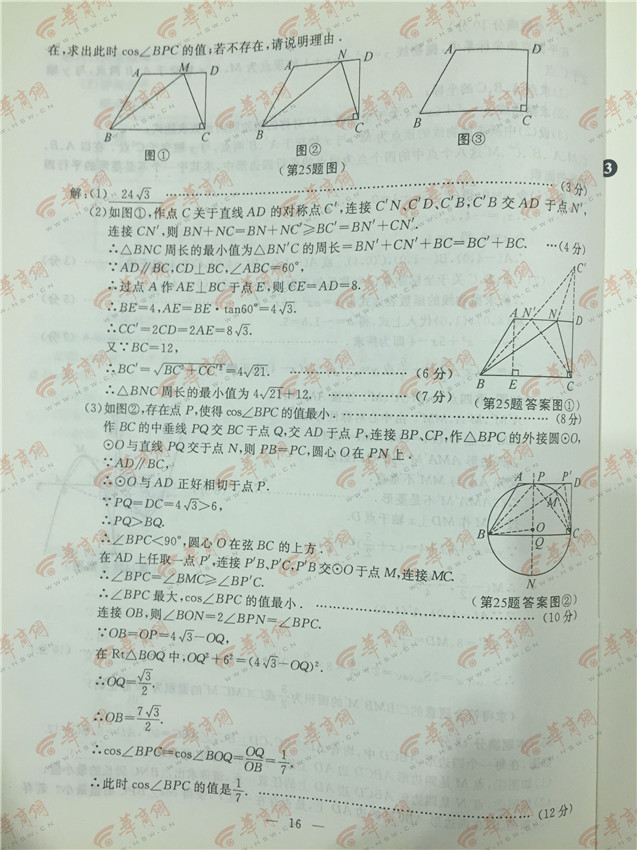 在,求出此时 cos∠BPC 的值;若不存在,请说明理由.
A M D
B C
图①
A N D
B C
图②
A D
B C
图③
(第25题图)
3
解:(1) 24√3 ……(3分)
(2)如图①,作点 C 关于直线 AD 的对称点 C′,连接 C′N、C′D、C′B,C′B 交 AD 于点 N′,
连接 CN′,则 BN+NC=BN+NC′≥BC′=BN′+CN′.
∴△BNC 周长的最小值为△BN′C 的周长=BN′+CN′+BC=BC′+BC. …(4分)
∵AD∥BC,CD⊥BC,∠ABC=60°,
∴过点 A 作 AE⊥BC 于点 E,则 CE=AD=8.
∴BE=4,AE=BE·tan60°=4√3.
∴CC′=2CD=2AE=8√3.
又∵BC=12,
∴BC′=√(BC²+CC′²)=4√21. ……(6分)
∴△BNC 周长的最小值为 4√21+12. ……(7分)
C′
A N′ N D
B E C
(第25题答案图①)
(3)如图②,存在点 P,使得 cos∠BPC 的值最小. ……(8分)
作 BC 的中垂线 PQ 交 BC 于点 Q,交 AD 于点 P,连接 BP、CP,作△BPC 的外接圆⊙O,
⊙O 与直线 PQ 交于点 N,则 PB=PC,圆心 O 在 PN 上.
∵AD∥BC,
∴⊙O 与 AD 正好相切于点 P.
∵PQ=DC=4√3>6,
∴PQ>BQ.
∴∠BPC<90°,圆心 O 在弦 BC 的上方.
在 AD 上任取一点 P′,连接 P′B、P′C,P′B 交⊙O 于点 M,连接 MC.
∴∠BPC=∠BMC≥∠BP′C.
∴∠BPC 最大,cos∠BPC 的值最小. ……(10分)
A P P′ D
M
O
B Q C
N
(第25题答案图②)
连接 OB,则∠BON=2∠BPN=∠BPC.
∵OB=OP=4√3-OQ,
在 Rt△BOQ 中,OQ²+6²=(4√3-OQ)².
∴OQ=√3/2.
∴OB=7√3/2.
∴cos∠BPC=cos∠BOQ=OQ/OB=1/7.
∴此时 cos∠BPC 的值是1/7. ……(12分)
— 16 —
华育网
WWW.HSW.CN